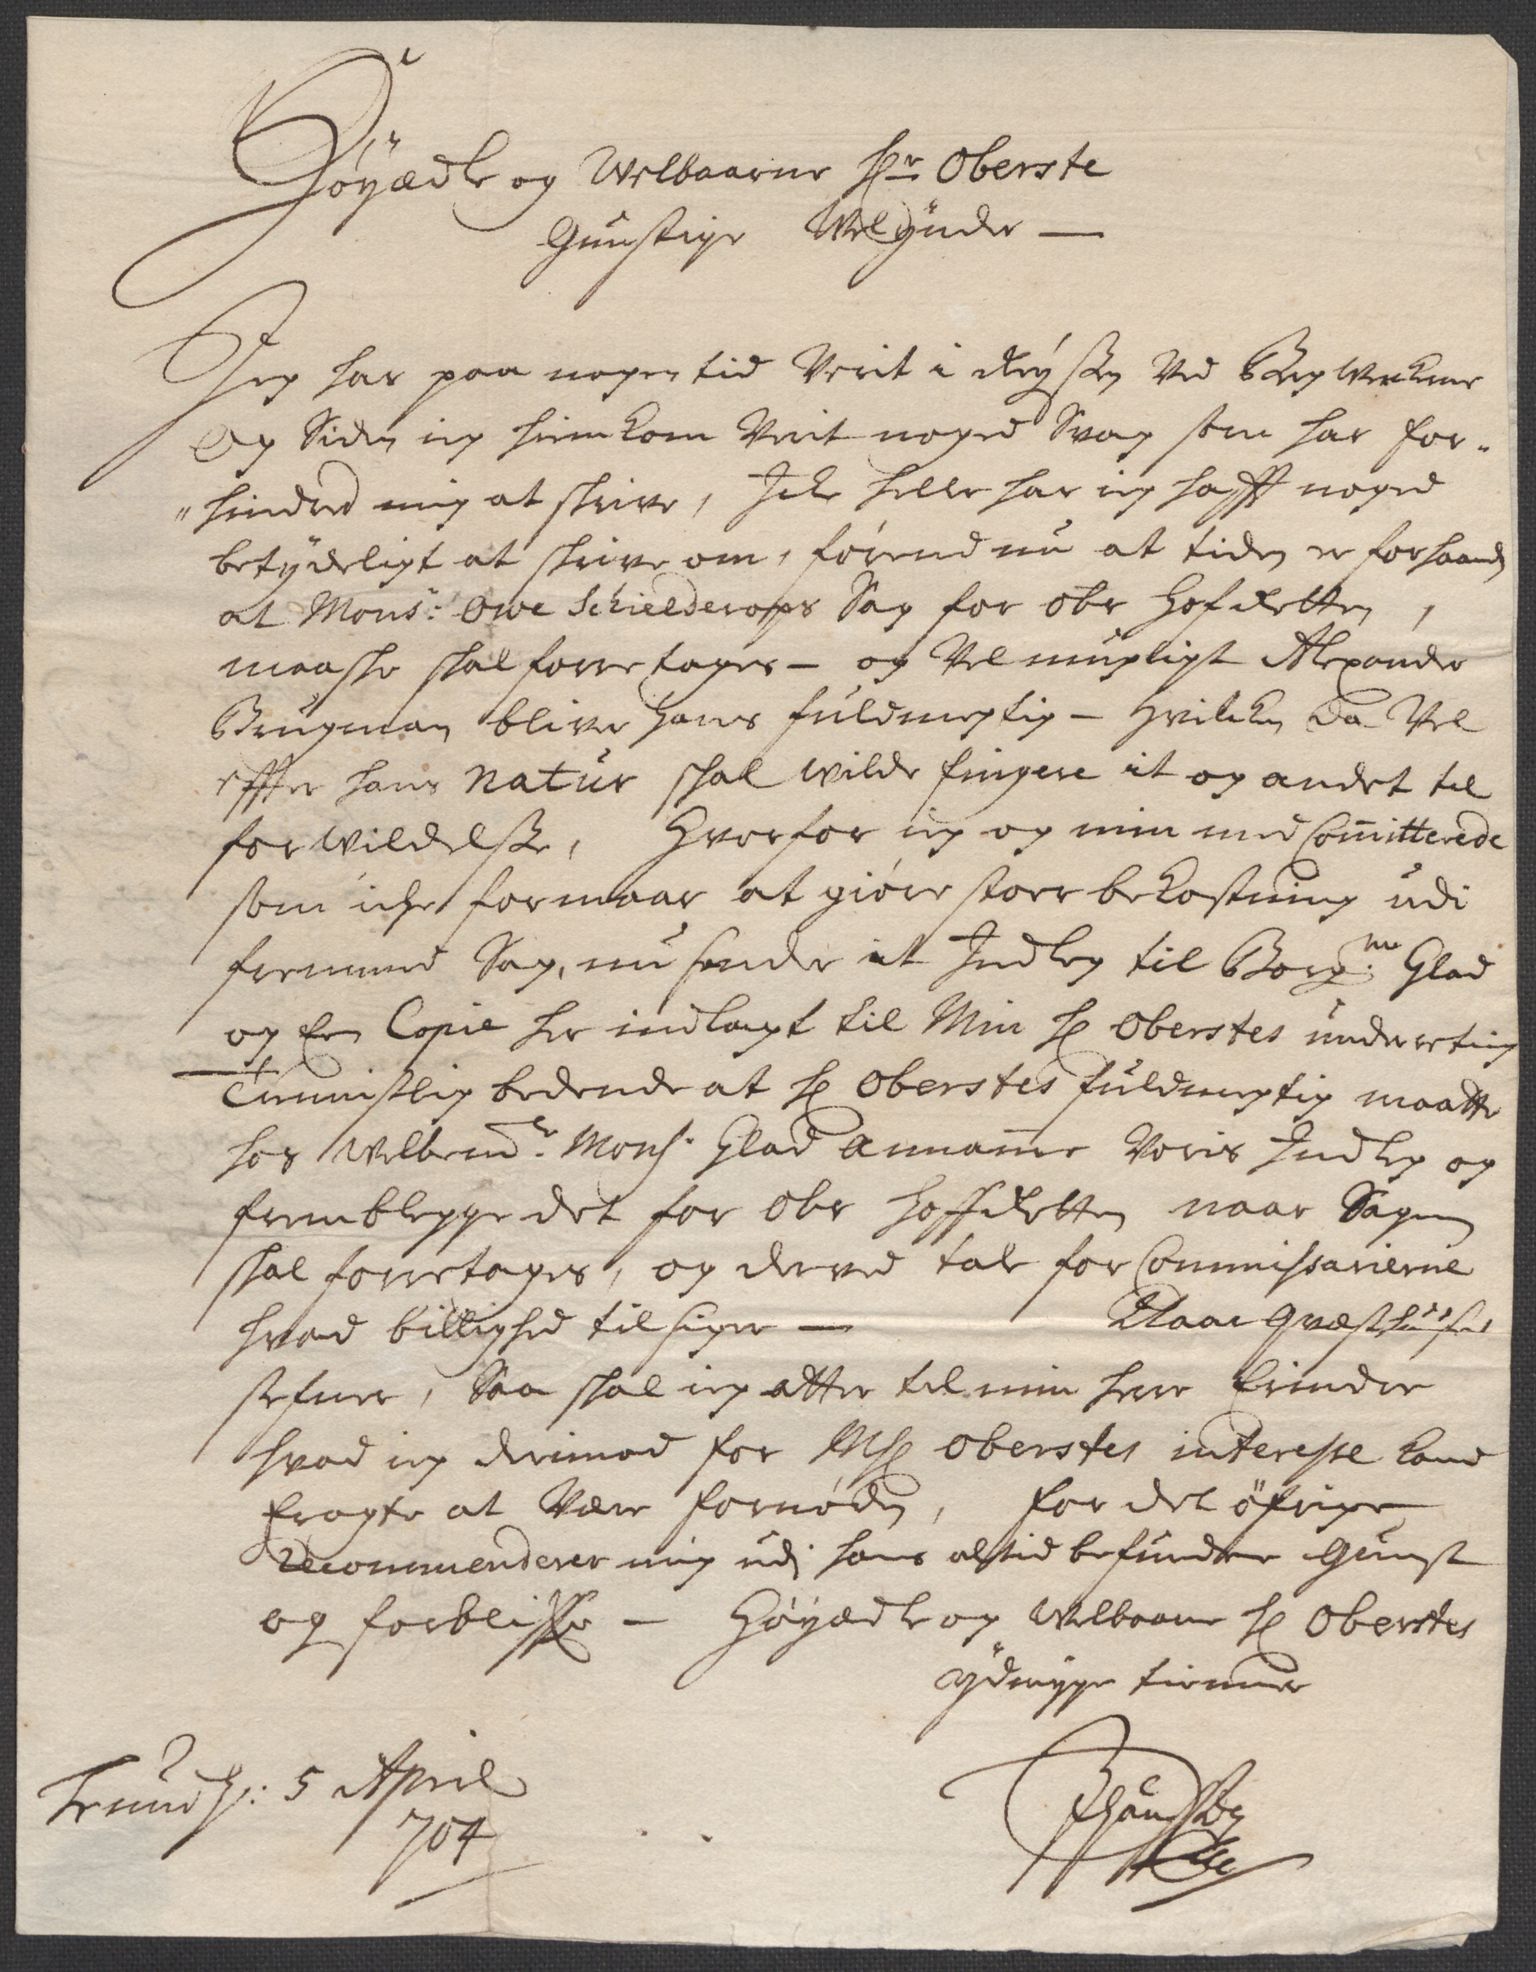 Höÿædle og Welbaarne Hr Oberste
Gunstige Welÿnder —
Jeg har paa nogen tid Verit i Reÿsen Ved BergWerkene
Og Siden ieg hiemkom Verit noged Svag som har for-
"hindred mig at skrive, Icke heller har ieg hafft noged
betÿdeligt at skrive om, førend nu at tiden er forhaanden
at Monsr: Owe Schielderops Sag for obr HofRetten,
maaske skal forretages — og Vel mueligt Alexander
Brugman bliver hans fuldmegtig — Hvilcken da Vel
effter hans Natur skal wilde fingere it og andet til
forwildelse, Hvorfor ieg og min med Committerede
som icke formaar at giøre stoer bekostning udi
fremmed Sag, nu sender it Indleg til Borgm: Glad
og En Copie her indlagt til Min H Oberstes underretning
tiennistlig bedende at H Oberstes fuldmegtig maatte
hos Welbemte Mons. Glad annamme Voris Indleg og
fremblegge det for Obr HoffRetten naar Sagen
skal forretages, og derved tale for Commissarierne
hvad billighed tilsiger — Naar
stefner, Saa skal ieg atter til min herre Erindre
hvad ieg derimod for MH Oberstes interesse kand
Eragte at Være fornøden, for det öfrige
Recommenderer mig udi hans altid befundne gunst
og forblifver — Höÿædle og Welbaarne H Oberstes
ÿdmyge tienner
Trundh: 5 April
704